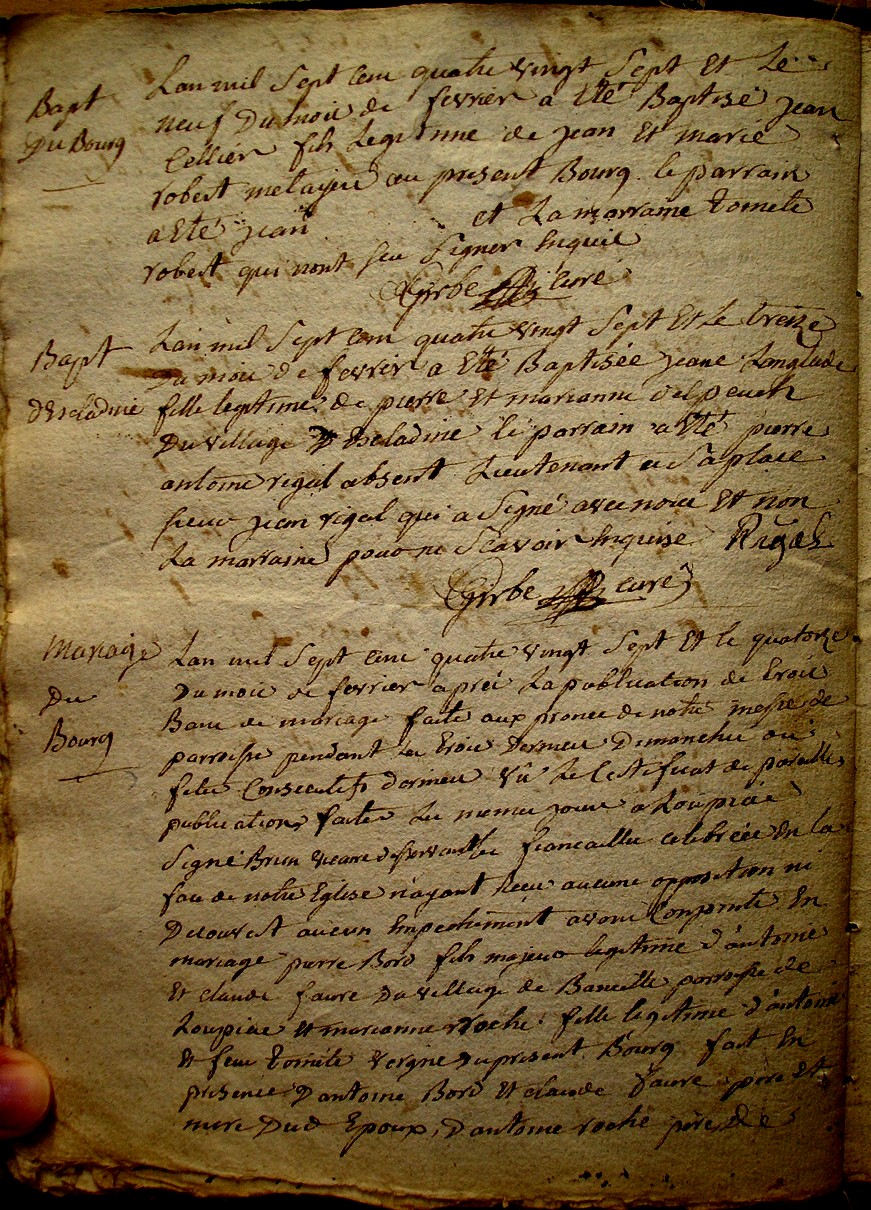 Bapt
Du Bourg
Lan mil Sept Cent quatre vingt Sept et Le
neuf Du mois de fevrier a Eté Baptisé Jean
Cellier fils Legitime de jean Et marie
robert metayer au present Bourg. le parrain
a Eté jean et La marraine tomete
robert qui nont sçu Signer Inquis
Girbe curé
Bapt
dEscladine
Lan mil Sept Cent quatre vingt Sept Et Le treize
Du mois de fevrier a Eté Baptisée jeane Langlade
fille legitime de pierre Et marianne delpeuch
Du village dEscladine le parrain a Eté pierre
antoine rigal absent Lieutenant en Sa place
sieur jean rigal qui a Signé avec nous Et non
La marraine pour ne Scavoir Inquise Rigal
Girbe curé
Mariage
Du
Bourg
Lan mil Sept Cent quatre vingt Sept Et le quatorze
Du mois de fevrier aprés La publication de trois
Banc de mariage faite aux prones de notre messe de
parroisse pendant les trois derniers Dimanches ou
fetes Consecutifs dernier Vû Le Certificat de pareilles
publications faites Les memes jours a Loupiac
Signé Brun vicaire les fiancailles celebrées En la
face de notre Eglise n'ayant Reçu aucune opposition ni
Decouvert aucun Empechement avons Conjointe En
mariage pierre Bord fils majeur legitime d'antoine
Et claude faure Du village de Baneille parroisse de
Loupiac Et marianne roche fille legitime d'antoine
Et feue tomete vergne du present Bourg fait En
presence Dantoine Bord Et claude faure pere Et
mere Dud Epoux, Dantoine roche pere De